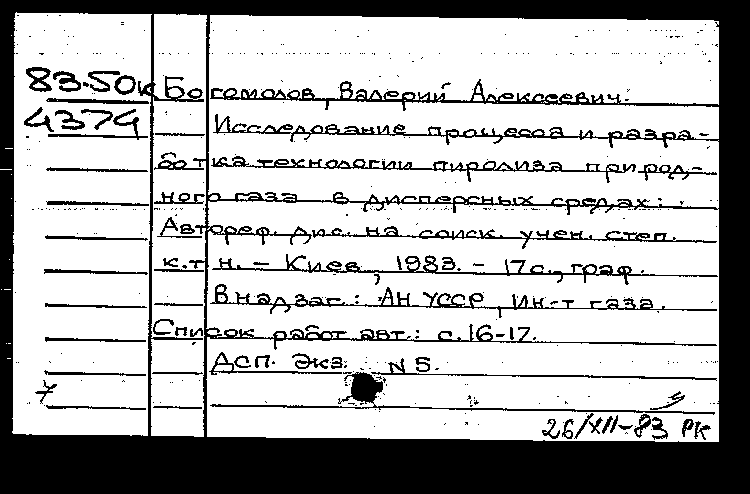 83.50к Богомолов, Валерий Алексеевич.
4374 Исследование процесса и разра-
ботка технологии пиролиза природ-
ного газа в дисперсных средах:
Автореф. дис. на соиск. учен. степ.
к.т.н. – Киев, 1983. – 17с., граф.
В надзаг.: АН УССР, Ин-т газа.
Список работ авт.: с.16-17.
ДСП. Экз. N 5.
7
26/XII-83 РК